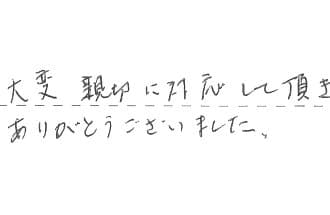 大変 親切に対応して頂き
ありがとうございました。